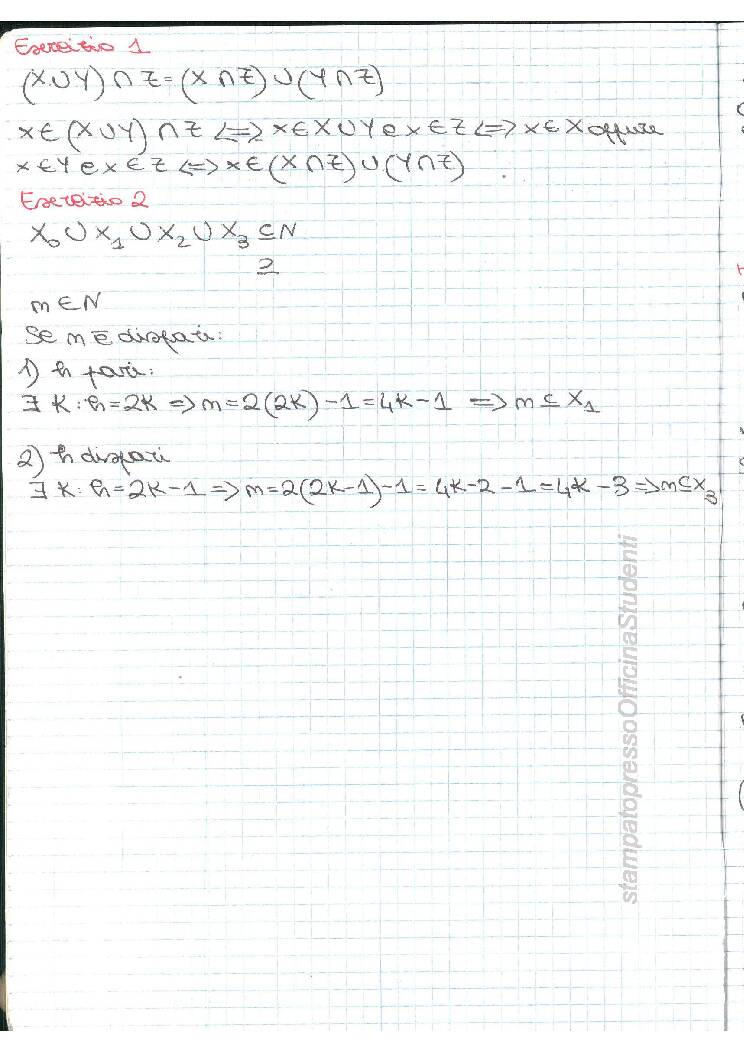 Esercizio 1
(X∪Y)∩Z=(X∩Z)∪(Y∩Z)
x∈(X∪Y)∩Z<=>x∈X∪Y e x∈Z<=>x∈X oppure
x∈Y e x∈Z<=>x∈(X∩Z)∪(Y∩Z).
Esercizio 2
X₀∪X₁∪X₂∪X₃⊆N
⊇
m∈N
Se m è dispari:
1) h pari:
∃ K: h=2K => m=2(2K)-1=4K-1 => m⊆X₁
2) h dispari
∃ K: h=2K-1 => m=2(2K-1)-1=4K-2-1=4K-3=>m⊆X₃
stampatopressoOfficinaStudenti